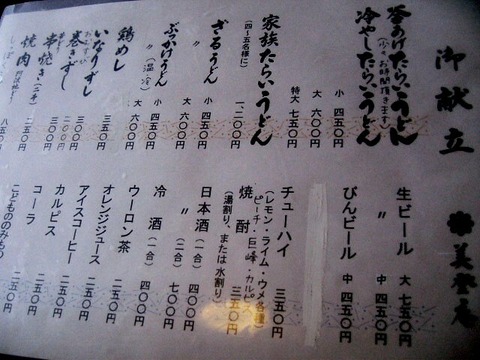 御献立
釜あげたらいうどん
(少々お時間頂きます)
冷やしたらいうどん
小 四五〇円
大 六〇〇円
特大 七五〇円
家族たらいうどん
(四~五名様に)
一、二〇〇円
ざるうどん
小 四五〇円
〃 大 六〇〇円
ぶっかけうどん
小 四五〇円
〃 (温・冷)
大 六〇〇円
鶏めし
いなりずし
巻きずし
串焼き
焼肉
生ビール 大 七五〇円
〃 中 四五〇円
びんビール 中 四五〇円
チューハイ 三五〇円
(レモン・ライム・ウメ各種)
ピーチ・巨峰・カルピ
焼酎 三五〇円
(湯割り、または水割り)
日本酒 (一合) 四〇〇円
〃 (二合) 七〇〇円
冷酒 (一合) 四〇〇円
ウーロン茶 二五〇円
オレンジジュース 二五〇円
アイスコーヒー 二五〇円
カルピス 二五〇円
コーラ 二五〇円
こどもののみもの 二五〇円